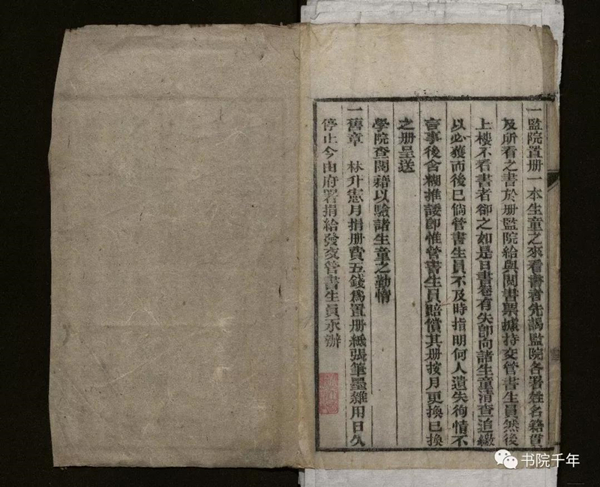 一監院置册一本生童之來看書者先謁監院各署姓名籍貫
及所看之書於册監院給與閱書票據持交管書生員然後
上樓不看書者卻之如是日書卷有失卽向諸生童清查追繳
以必獲而後已倘管書生員不及時指明何人遺失徇情不
言事後含糊推諉卽惟管書生員賠償其册按月更換已換
之册呈送
學院查閱藉以驗諸生童之勤惰
一舊章 林升憲月捐册費五錢爲置册紙張筆墨雜用日久
停止今由府署捐給發交管書生員承辦
书院千年